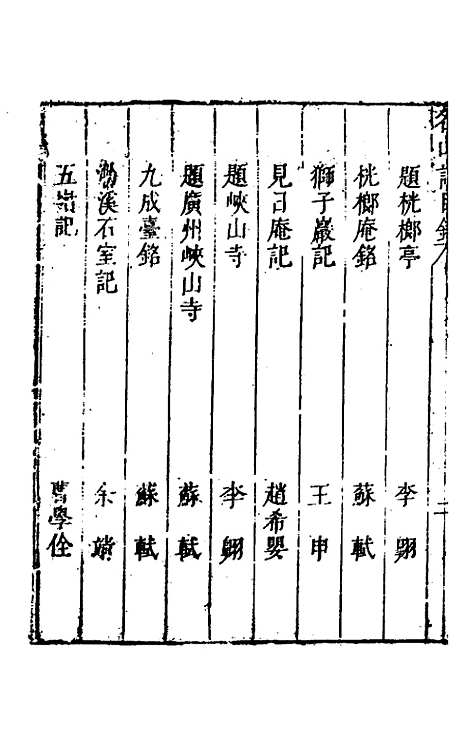 名山記目錄
二
題桄榔亭 李翺
桄榔庵銘 蘇軾
獅子巖記 王申
見日庵記 趙希嬰
題峽山寺 李翺
題廣州峽山寺 蘇軾
九成臺銘 蘇軾
溪石室記 余靖
五嶺記 曹學佺